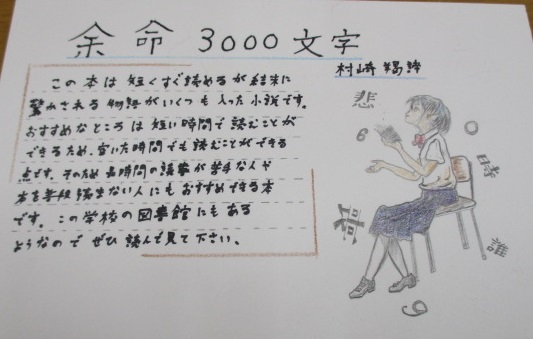 余命 3000文字
村崎羯諦
この本は短くすぐ読めるが結末に
驚かされる物語がいくつも入った小説です。
おすすめなところは短い時間で読むことが
できるため、空いた時間でも読むことができる
点です。そのため長時間の読書が苦手な人や
本を普段読まない人にもおすすめできる本
です。この学校の図書館にもある
ようなのでぜひ読んで見て下さい。
悲
6
0
時
誰
9